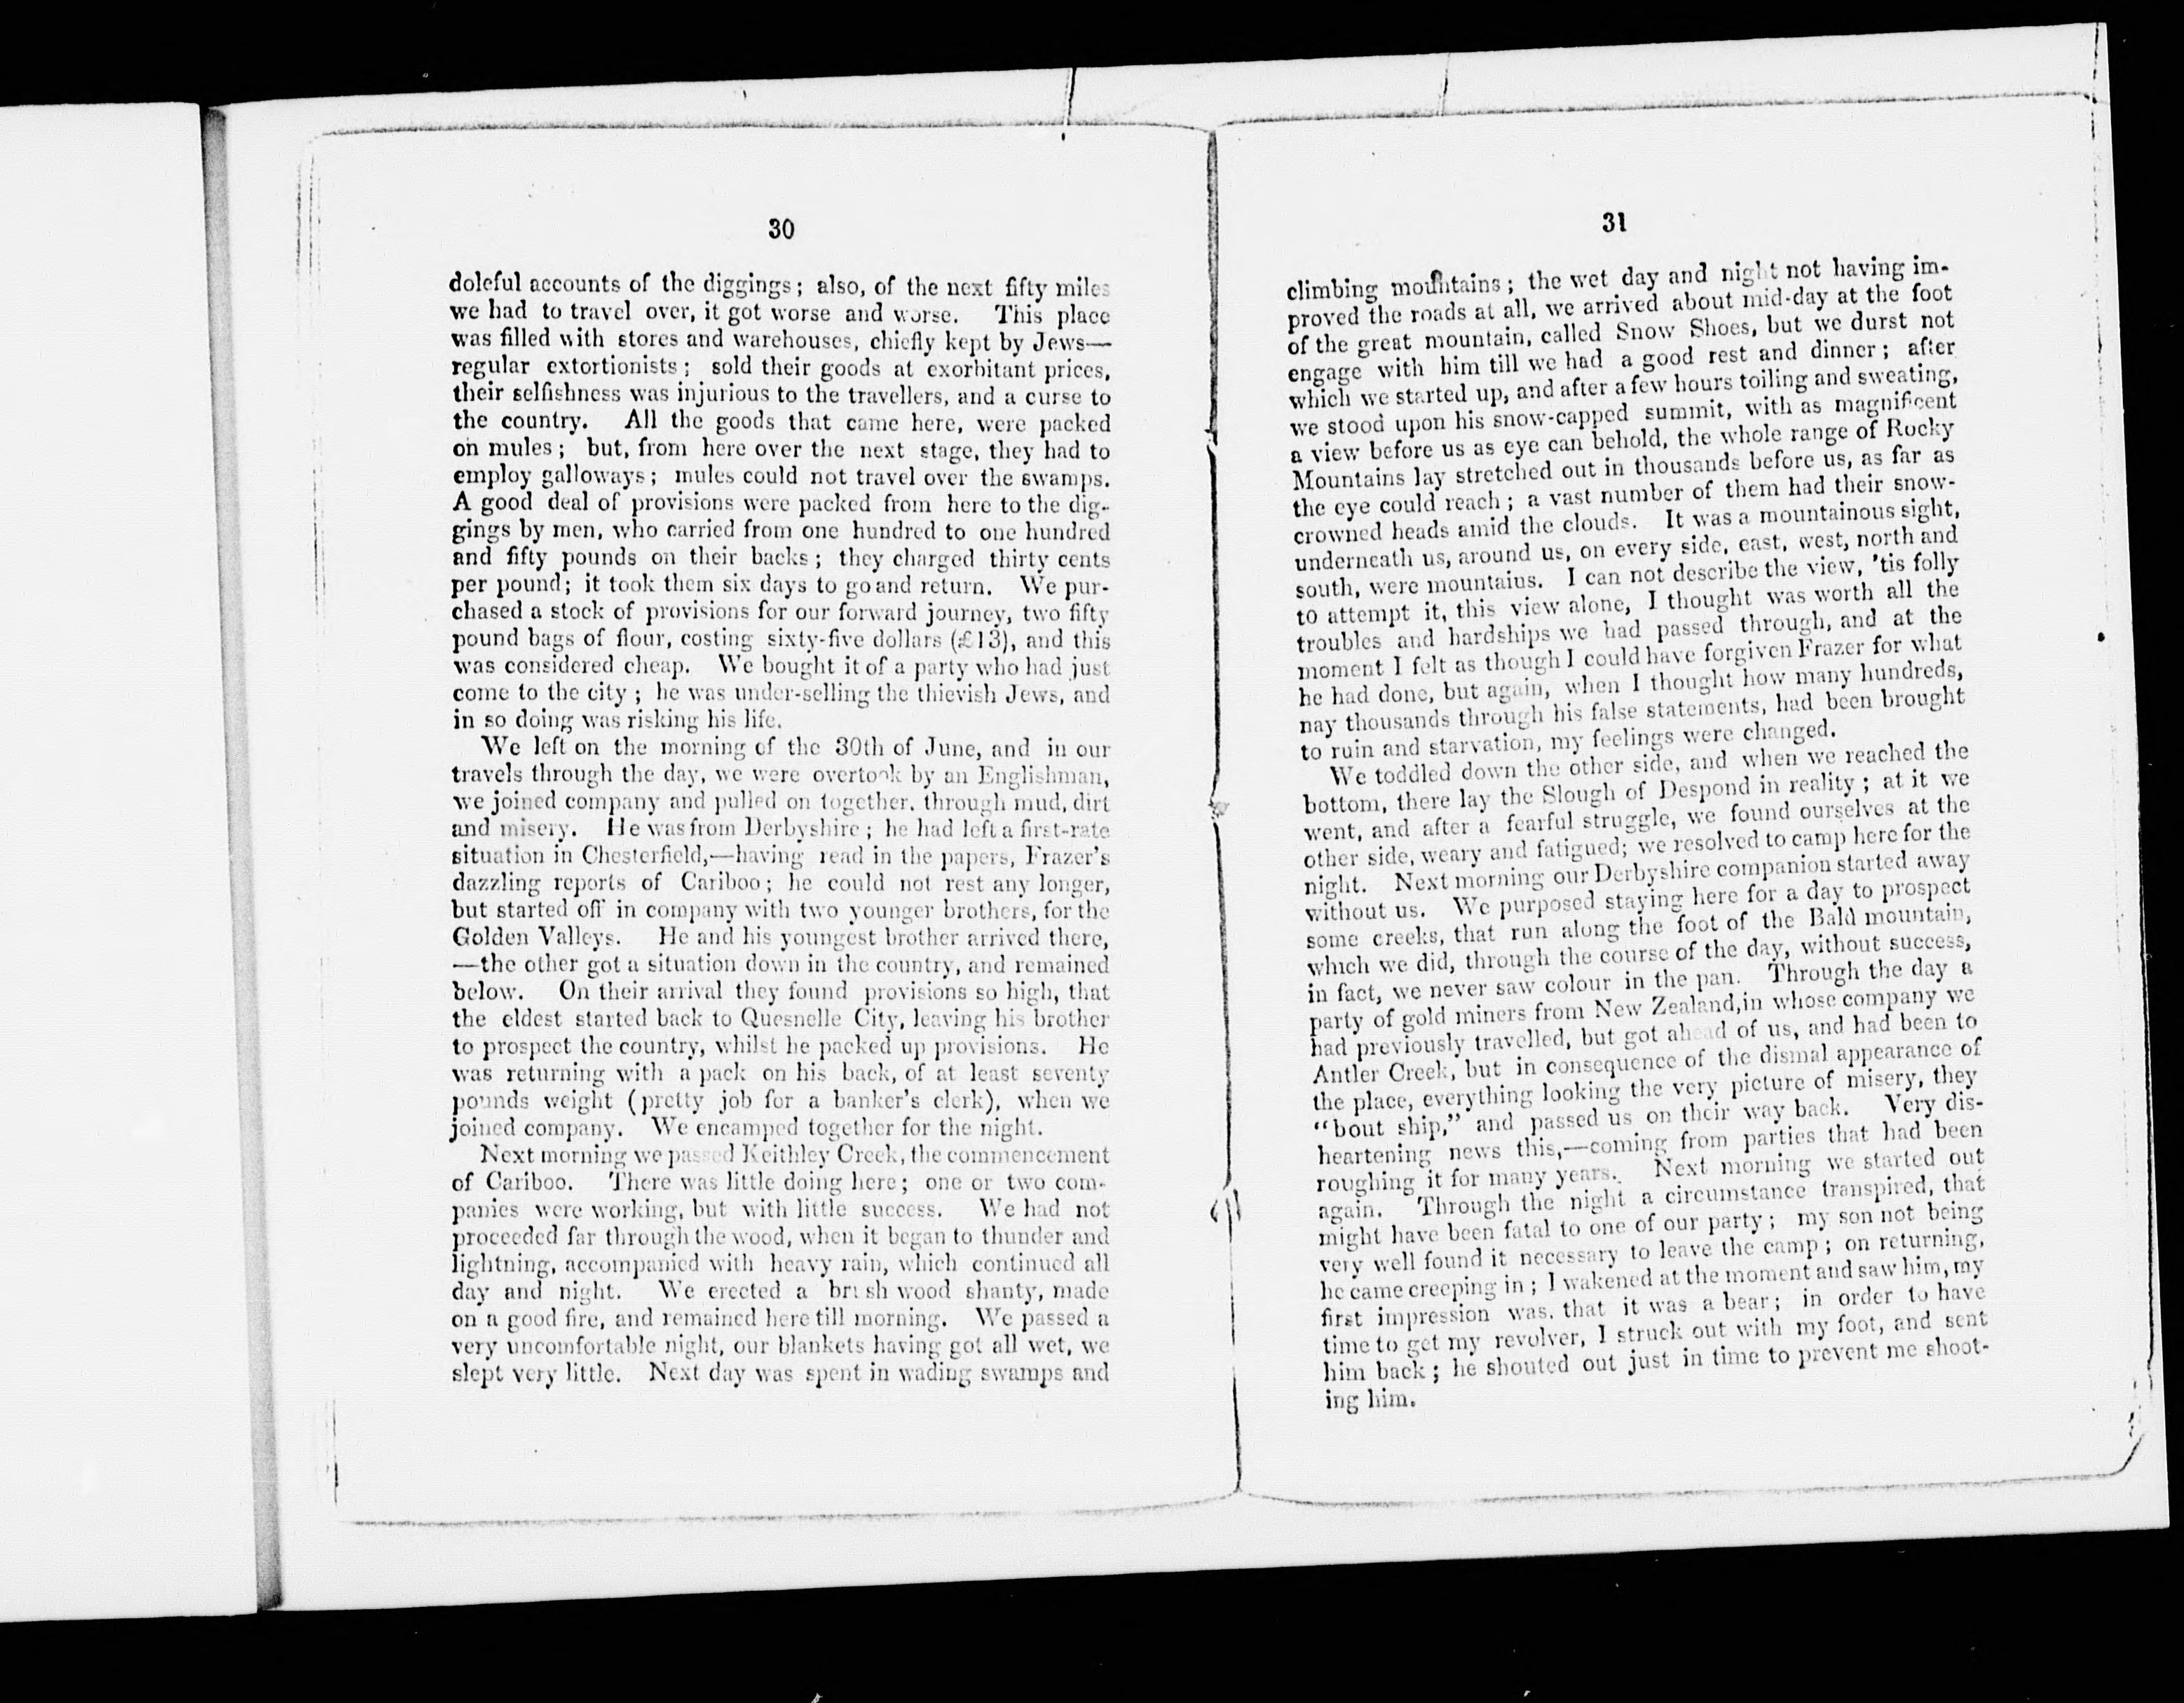 30
doleful accounts of the diggings; also, of the next fifty miles
we had to travel over, it got worse and worse. This place
was filled with stores and warehouses, chiefly kept by Jews—
regular extortionists; sold their goods at exorbitant prices,
their selfishness was injurious to the travellers, and a curse to
the country. All the goods that came here, were packed
on mules; but, from here over the next stage, they had to
employ galloways; mules could not travel over the swamps.
A good deal of provisions were packed from here to the dig-
gings by men, who carried from one hundred to one hundred
and fifty pounds on their backs; they charged thirty cents
per pound; it took them six days to go and return. We pur-
chased a stock of provisions for our forward journey, two fifty
pound bags of flour, costing sixty-five dollars (£13), and this
was considered cheap. We bought it of a party who had just
come to the city; he was under-selling the thievish Jews, and
in so doing was risking his life.
We left on the morning of the 30th of June, and in our
travels through the day, we were overtook by an Englishman,
we joined company and pulled on together, through mud, dirt
and misery. He was from Derbyshire; he had left a first-rate
situation in Chesterfield,—having read in the papers, Frazer's
dazzling reports of Cariboo; he could not rest any longer,
but started off in company with two younger brothers, for the
Golden Valleys. He and his youngest brother arrived there,
—the other got a situation down in the country, and remained
below. On their arrival they found provisions so high, that
the eldest started back to Quesnelle City, leaving his brother
to prospect the country, whilst he packed up provisions. He
was returning with a pack on his back, of at least seventy
pounds weight (pretty job for a banker's clerk), when we
joined company. We encamped together for the night.
Next morning we passed Keithley Creek, the commencement
of Cariboo. There was little doing here; one or two com-
panies were working, but with little success. We had not
proceeded far through the wood, when it began to thunder and
lightning, accompanied with heavy rain, which continued all
day and night. We erected a brush wood shanty, made
on a good fire, and remained here till morning. We passed a
very uncomfortable night, our blankets having got all wet, we
slept very little. Next day was spent in wading swamps and
31
climbing mountains; the wet day and night not having im-
proved the roads at all, we arrived about mid-day at the foot
of the great mountain, called Snow Shoes, but we durst not
engage with him till we had a good rest and dinner; after
which we started up, and after a few hours toiling and sweating,
we stood upon his snow-capped summit, with as magnificent
a view before us as eye can behold, the whole range of Rocky
Mountains lay stretched out in thousands before us, as far as
the eye could reach; a vast number of them had their snow-
crowned heads amid the clouds. It was a mountainous sight,
underneath us, around us, on every side, east, west, north and
south, were mountains. I can not describe the view, 'tis folly
to attempt it, this view alone, I thought was worth all the
troubles and hardships we had passed through, and at the
moment I felt as though I could have forgiven Frazer for what
he had done, but again, when I thought how many hundreds,
nay thousands through his false statements, had been brought
to ruin and starvation, my feelings were changed.
We toddled down the other side, and when we reached the
bottom, there lay the Slough of Despond in reality; at it we
went, and after a fearful struggle, we found ourselves at the
other side, weary and fatigued; we resolved to camp here for the
night. Next morning our Derbyshire companion started away
without us. We purposed staying here for a day to prospect
some creeks, that run along the foot of the Bald mountain,
which we did, through the course of the day, without success,
in fact, we never saw colour in the pan. Through the day a
party of gold miners from New Zealand, in whose company we
had previously travelled, but got ahead of us, and had been to
Antler Creek, but in consequence of the dismal appearance of
the place, everything looking the very picture of misery, they
"bout ship," and passed us on their way back. Very dis-
heartening news this,—coming from parties that had been
roughing it for many years. Next morning we started out
again. Through the night a circumstance transpired, that
might have been fatal to one of our party; my son not being
very well found it necessary to leave the camp; on returning,
he came creeping in; I wakened at the moment and saw him, my
first impression was, that it was a bear; in order to have
time to get my revolver, I struck out with my foot, and sent
him back; he shouted out just in time to prevent me shoot-
ing him.